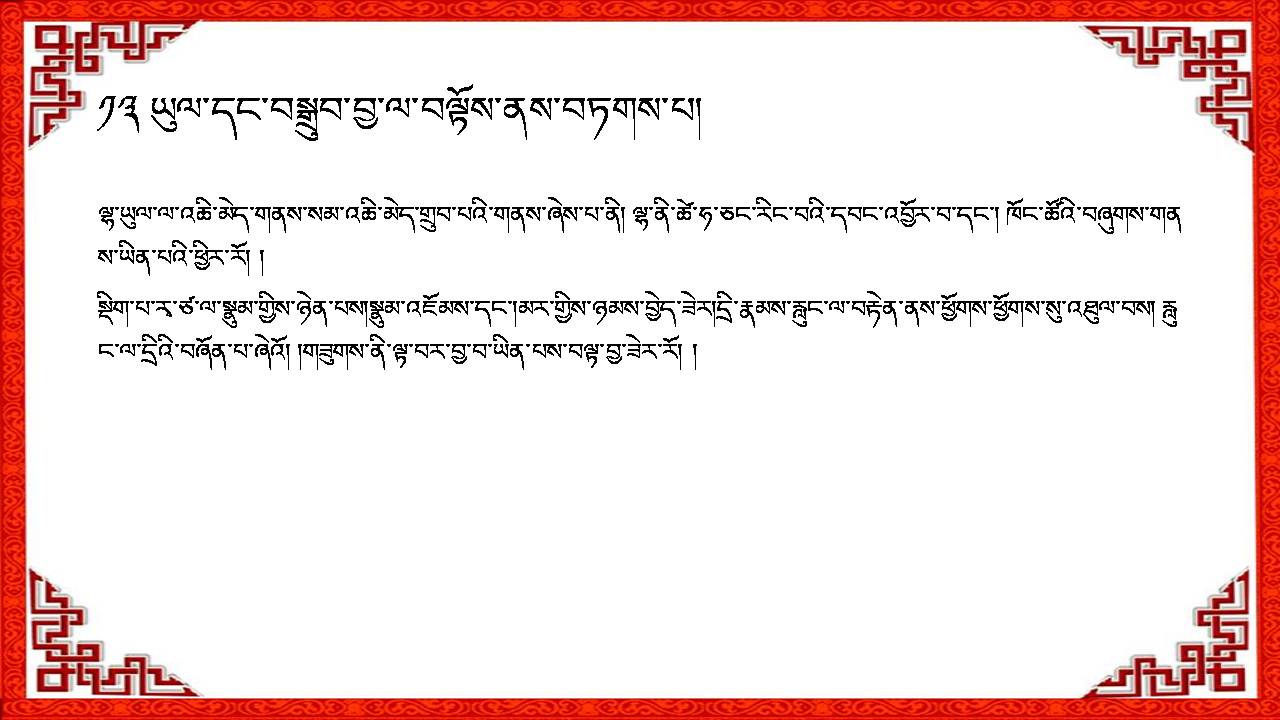 ༡༣ ཡུལ་དང་བསྒྲུབ་བྱ་ལ་བལྟོས་ནས་བཏགས་པ།
ལྷ་ཡུལ་ལ་འཆི་མེད་གནས་སམ་འཆི་མེད་གྲུབ་པའི་གནས་ཞེས་པ་ནི། ལྷ་ནི་ཚེ་ཧ་ཅང་རིང་བའི་དབང་འབྱོར་བ་དང་། ཁོང་ཚོའི་བཞུགས་གན
ས་ཡིན་པའི་ཕྱིར་རོ། །
སྡིག་པ་ར་ཙ་ལ་སྣུམ་གྱིས་ཉེན་པས།སྣུམ་འཇོམས་དང་།མར་གྱིས་ཉམས་བྱེད་ཟེར།དྲི་རྣམས་རླུང་ལ་བརྟེན་ནས་ཕྱོགས་ཕྱོགས་སུ་འཐུལ་བས། རླུ
ང་ལ་དྲིའི་བཞོན་པ་ཞེའོ། །གཟུགས་ནི་ལྟ་བར་བྱ་བ་ཡིན་པས་བལྟ་བྱ་ཟེར་རོ། །